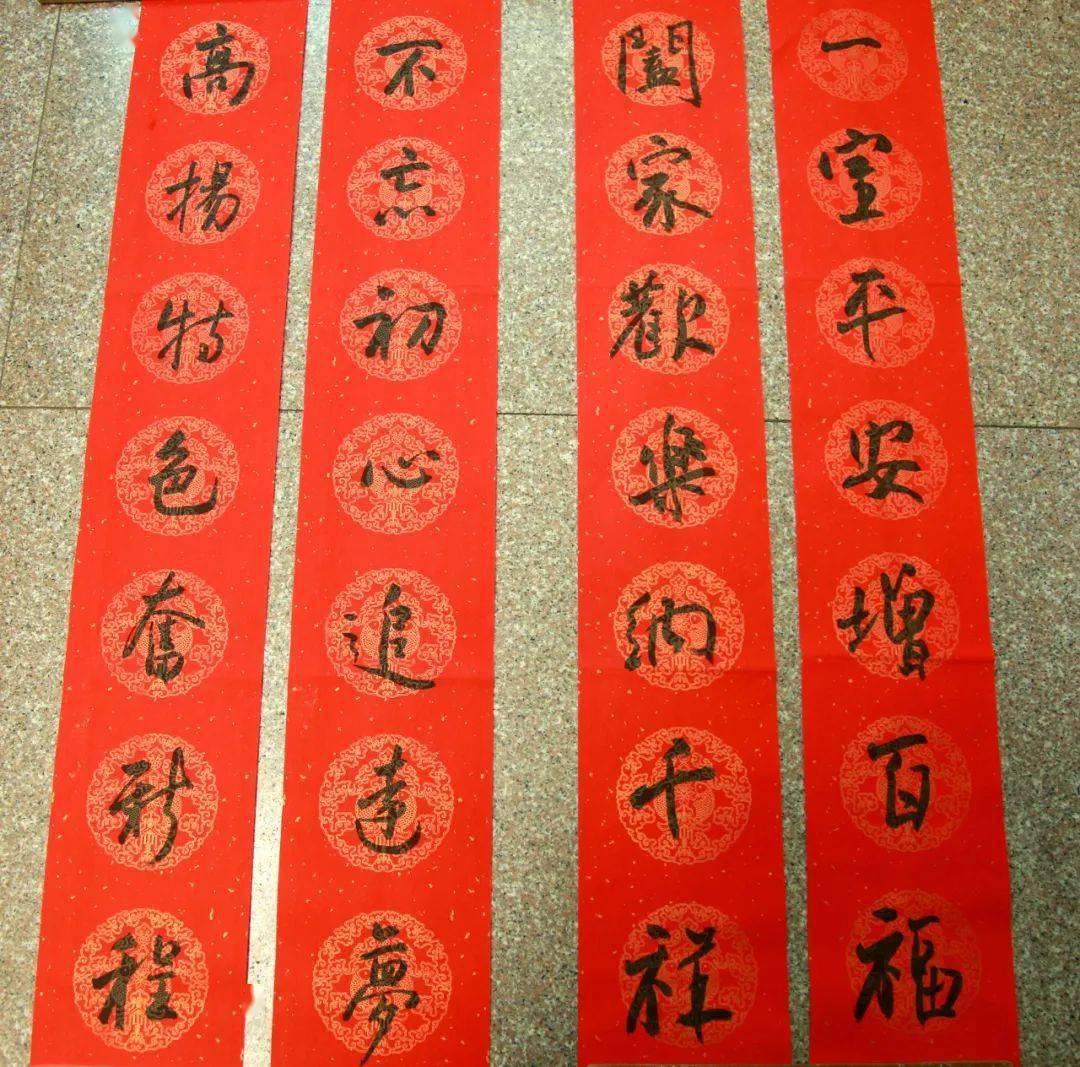 一室平安增百福
闔家歡樂納千祥
不忘初心追遠夢
高揚特色奮新程